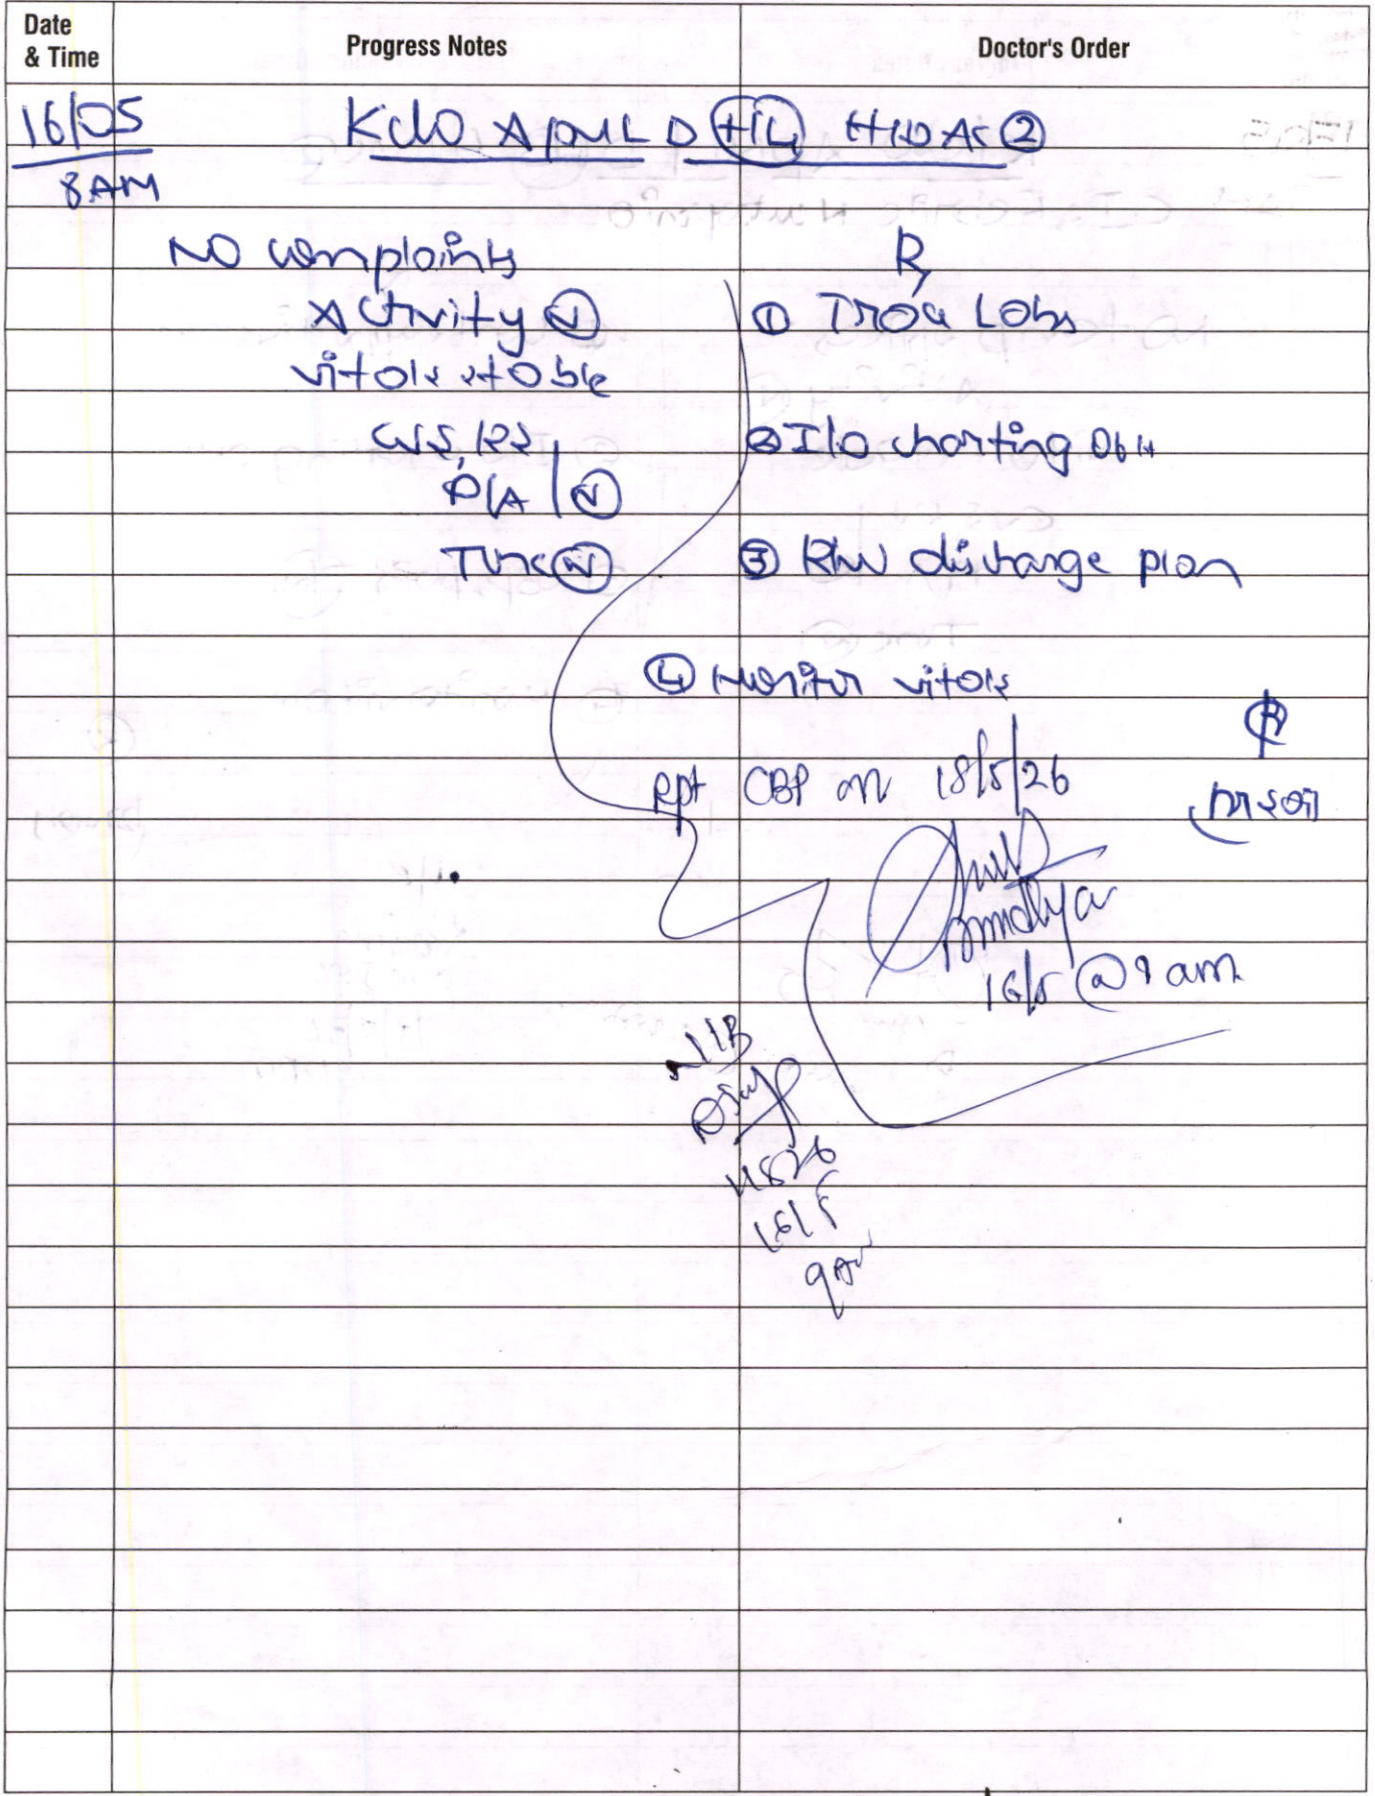 Date & Time
Progress Notes
Doctor's Order
16/05
8 AM
K c/o APML D+14 HIDAC ②
No complaints
Activity Ⓝ
vitals stable
CVS, RS
P/A Ⓝ
Ⓝ
Rx
① Trace Labs
② I/O charting 06 H
③ R/w discharge plan
④ Monitor vitals
Rpt CBP on 18/5/26
16/5 @ 9 am
16/5
9 AM